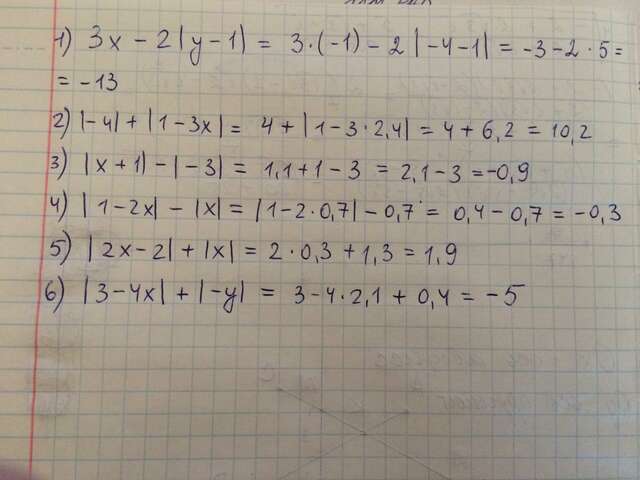 1) 3x - 2|y-1| = 3·(-1) - 2|-4-1| = -3-2·5=
= -13
2) |-4| + |1-3x| = 4 + |1-3·2,4| = 4+6,2 = 10,2
3) |x+1| - |-3| = 1,1+1-3 = 2,1-3 = -0,9
4) |1-2x| - |x| = |1-2·0,7| - 0,7 = 0,4-0,7 = -0,3
5) |2x-2| + |x| = 2·0,3 + 1,3 = 1,9
6) |3-4x| + |-y| = 3-4·2,1 + 0,4 = -5